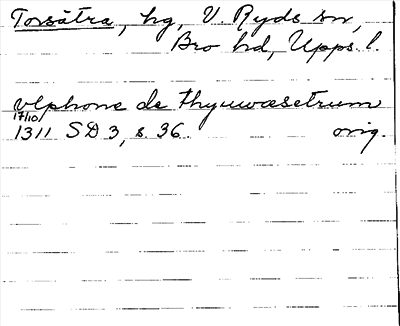 Torsåtra, hg, V. Ryds sn,
Bro hd, Upps. l.
vlphone de thyuwæsetrum
17/10
1311 SD 3, s. 36. orig.